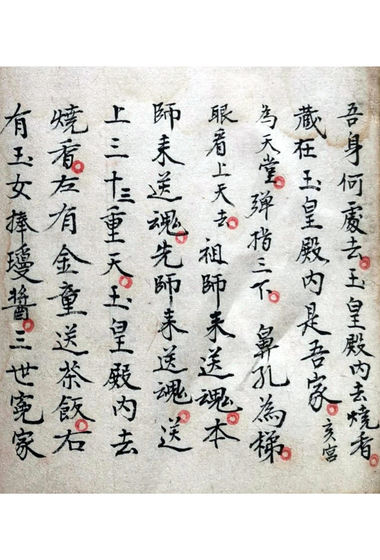 吾身何處去玉皇殿內去燒香
藏在玉皇殿內是吾家 亥宮
為天堂彈指三下 鼻孔為梯
眼看上天去 祖師來送魂本
師來送魂先師來送魂 送
上三十三重天玉皇殿內去
燒香左有金童送茶飯右
有玉女捧瓊醬三世冤家